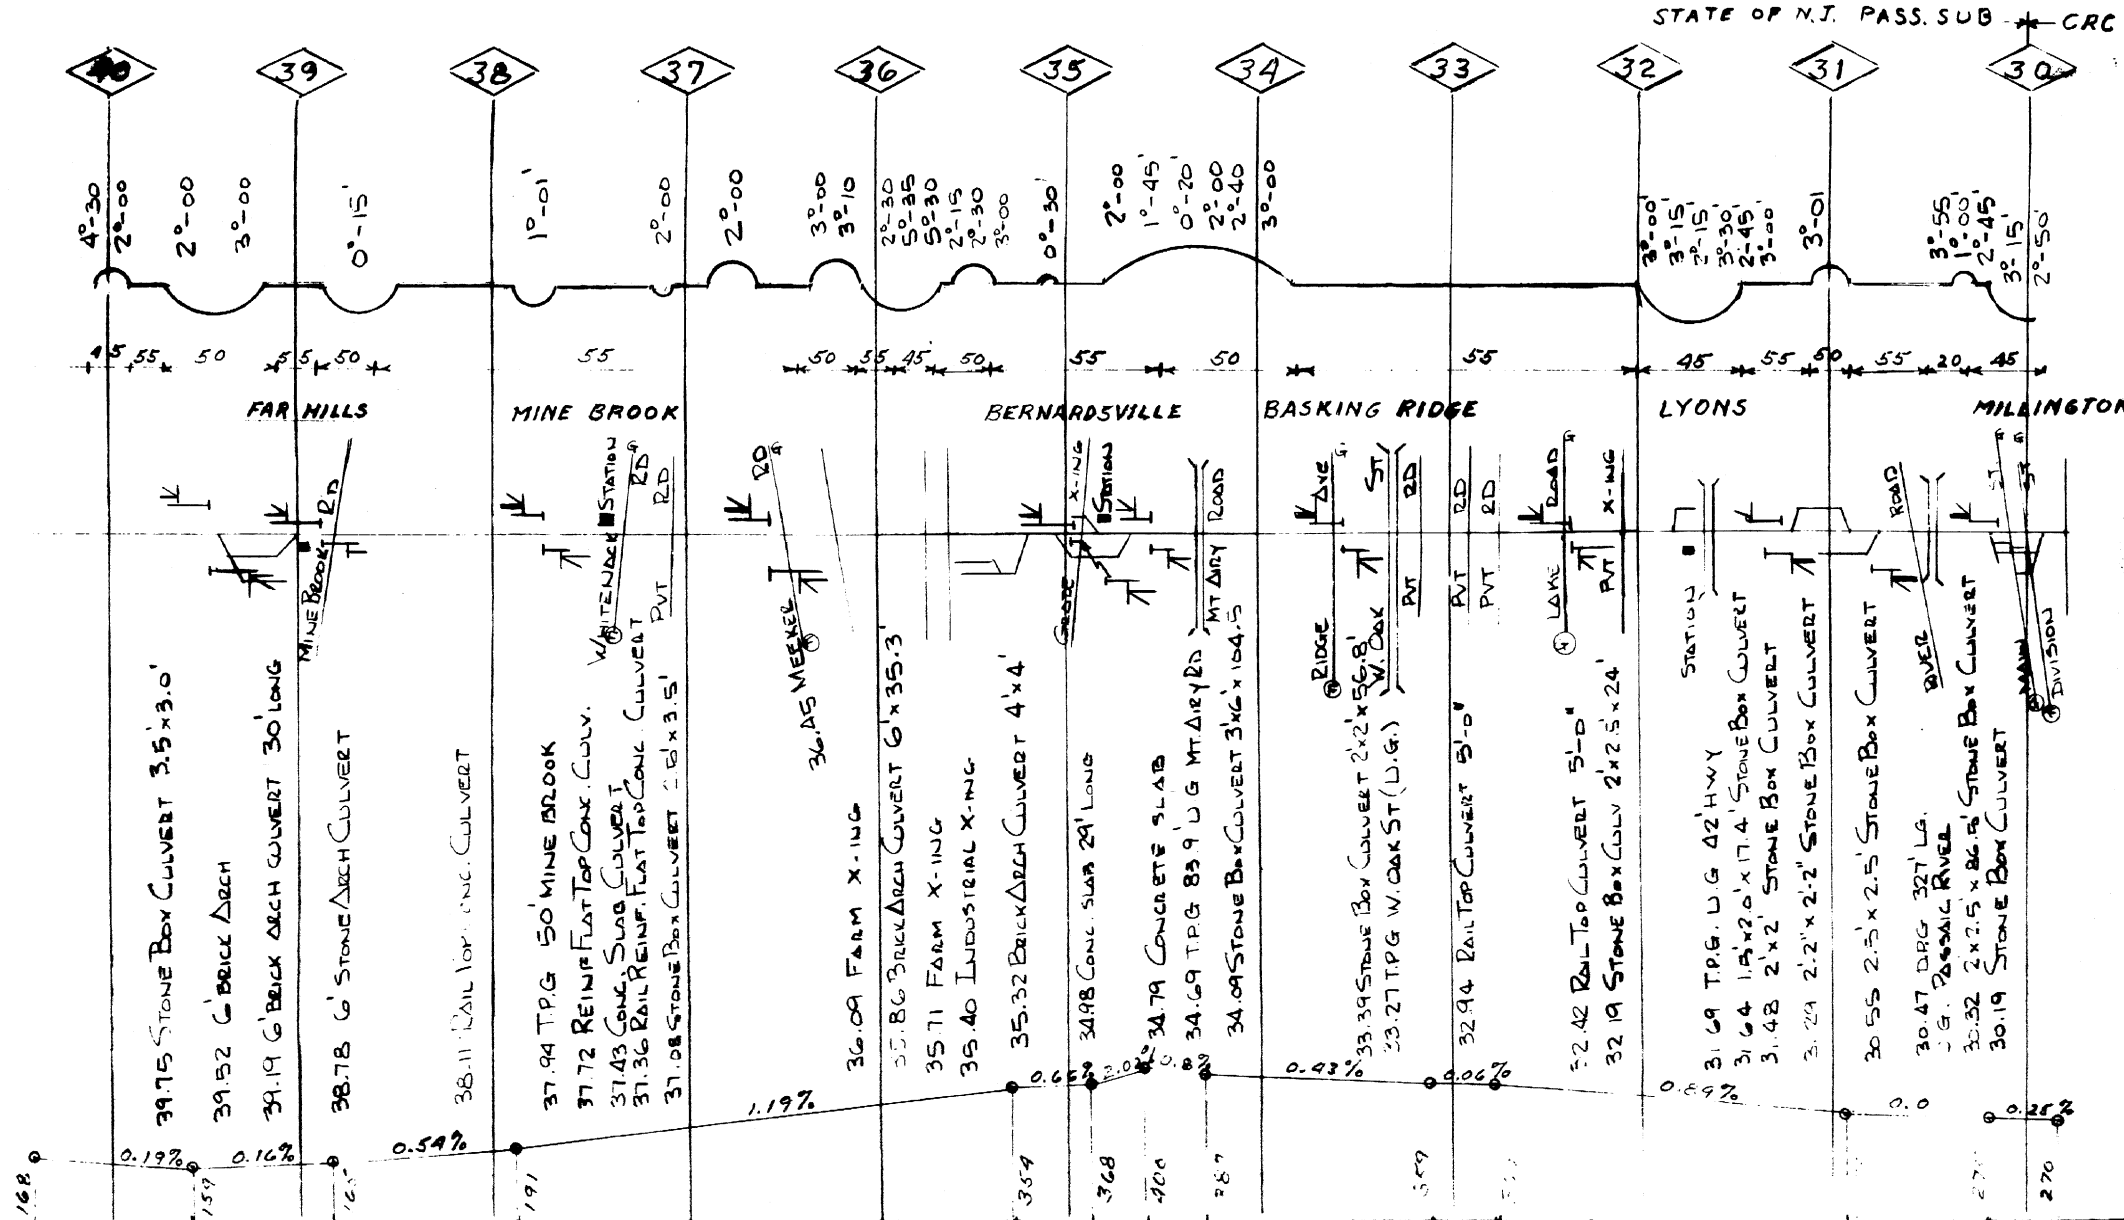 STATE OF N.J. PASS. SUB
CRC
40
39
38
37
36
35
34
33
32
31
30
4°-30
2°-00
2°-00
3°-00
0°-15'
1°-01'
2°-00
2°-00
3°-00
3°-10
2°-30
5°-35
5°-30
2°-15
2°-30
3°-00
0°-30'
2°-00
1°-45'
0°-20'
2°-00
2°-40
3°-00
3°-00'
3°-15'
2°-15'
3°-30'
2-45'
3°-00'
3°-01
3°-55
1°-00'
2°-45'
3°-15'
2°-50'
45 55 50 55 50 55 50 55 45 50 55 50 55 45 55 50 55 20 45
FAR HILLS
MINE BROOK
BERNARDSVILLE
BASKING RIDGE
LYONS
MILLINGTON
MINE BROOK RD
WHITENACK RD
STATION
PVT RD
MEEKER RD
GRADE X-ING
STATION
MT AIRY ROAD
RIDGE AVE
W. OAK ST
PVT RD
PVT RD
PVT RD
LAKE ROAD
PVT X-ING
STATION
RIVER ROAD
MAIN ST
DIVISION ST
39.75 STONE BOX CULVERT 3.5'x3.0'
39.52 6' BRICK ARCH
39.19 6' BRICK ARCH CULVERT 30' LONG
38.78 6' STONE ARCH CULVERT
38.11 RAIL TOP CONC. CULVERT
37.94 T.P.G 50' MINE BROOK
37.72 REINF FLAT TOP CONC. CULV.
37.43 CONC. SLAB CULVERT
37.36 RAIL REINF. FLAT TOP CONC. CULVERT
37.08 STONE BOX CULVERT x 3.5'
36.45
36.09 FARM X-ING
35.86 BRICK ARCH CULVERT 6'x35.3'
35.71 FARM X-ING
35.40 INDUSTRIAL X-ING
35.32 BRICK ARCH CULVERT 4'x4'
34.98 CONC. SLAB 29' LONG
34.79 CONCRETE SLAB
34.69 T.P.G 83.9' U G MT AIRY RD
34.09 STONE BOX CULVERT 3'x6'x104.5
33.39 STONE BOX CULVERT 2'x2'x56.8'
33.27 T.P.G W. OAK ST (U.G.)
32.94 RAIL TOP CULVERT 5'-0"
32.42 RAIL TOP CULVERT 5'-0"
32.19 STONE BOX CULV 2'x2.5'x24'
31.69 T.P.G. U.G 42' HWY
31.64 1.5'x2.0'x17.4' STONE BOX CULVERT
31.48 2'x2' STONE BOX CULVERT
3.29 2'.2"x2'-2" STONE BOX CULVERT
30 55 2.5'x2.5' STONE BOX CULVERT
30.47 D.P.G 327' LG.
U G. PASSAIC RIVER
30.32 2'x2.5'x86.5' STONE BOX CULVERT
30.19 STONE BOX CULVERT
0.19%
0.16%
0.54%
1.19%
0.66%
0.43%
0.06%
0.89%
0.0
0.25%
168
159
191
354
368
400
387
270